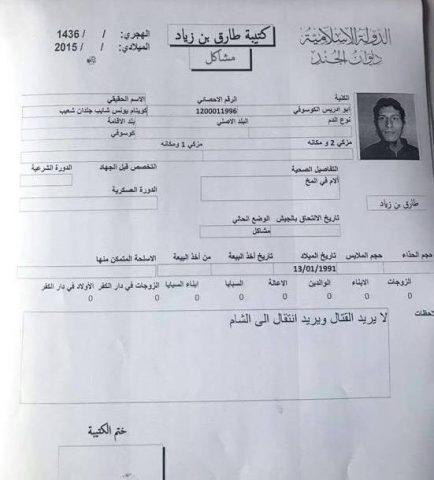 الدولة الإسلامية
ديوان الجند
كتيبة طارق بن زياد
مشاكل
الهجري: / / 1436
الميلادي: / / 2015
الكنية
الرقم الاحصائي
الاسم الحقيقي
ابو ادريس الكوسوفي
1200011996
نوع الدم
البلد الاصلي
بلد الاقامة
كوسوفي
مزكي 2 و مكانه
مزكي 1 ومكانه
التفاصيل الصحية
التخصص قبل الجهاد
الدورة الشرعية
آلام في المخ
الدورة العسكرية
طارق بن زياد
تاريخ الالتحاق بالجيش
الوضع الحالي
مشاكل
حجم الحذاء
حجم الملابس
تاريخ الميلاد
تاريخ أخذ البيعة
من أخذ البيعة
الاسلحة المتمكن منها
13/01/1991
الزوجات
الابناء
الوالدين
الاعالة
السبايا
ابناء السبايا
الزوجات في دار الكفر
الأولاد في دار الكفر
0 0 0 0 0 0 0 0
لا يريد القتال ويريد انتقال الى الشام
ختم الكتيبة